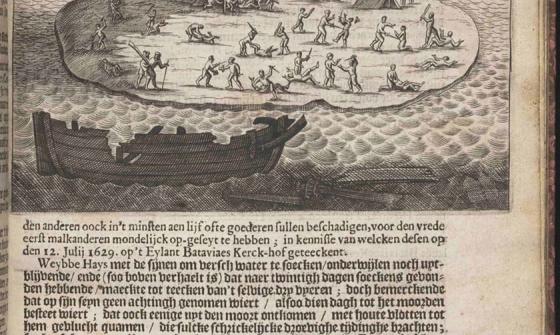 den anderen oock in't minsten aen lijf ofte goederen sullen beschadigen, voor den vrede
eerst malkanderen mondelijck op-geseyt te hebben ; in kennisse van welcken desen op
den 12. Julij 1629. op't Eylant Bataviaes Kerck-hof geteeckent.
Weybbe Hays met de sijnen om versch water te soecken/onderwijlen noch uyt-
blijvende/ ende (soo boven verhaelt is) dat naer twintigh dagen soeckens gebon-
den hebbende / maeckte tot teecken dan't selvige dzy vyeren ; doch bemerckende
dat op sijn seyn geen achtingh genomen wiert / alsoo dien dagh tot het moorden
besteet wiert ; dat oock eenige uyt den moort ontkomen / met houte vlotten tot
hem gevlucht quamen / die sulcke schrickelijcke